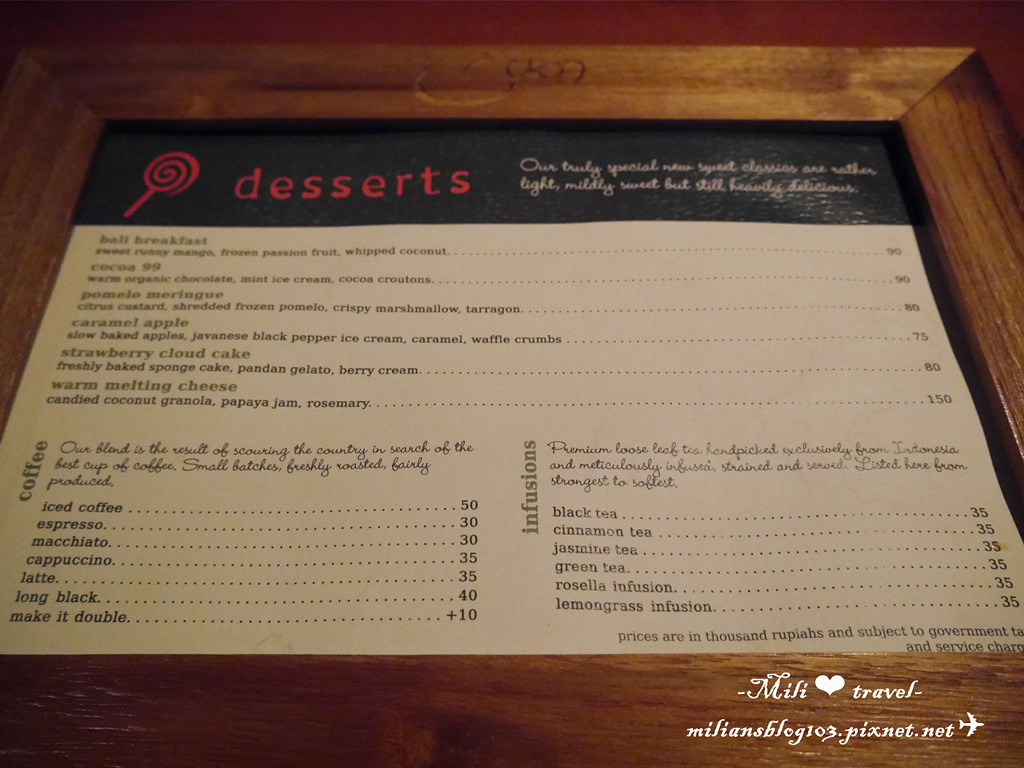 desserts
Our truly special new sweet classics are rather
light, mildly sweet but still heavily delicious.
bali breakfast
sweet runny mango, frozen passion fruit, whipped coconut. 90
cocoa 99
warm organic chocolate, mint ice cream, cocoa croutons. 90
pomelo meringue
citrus custard, shredded frozen pomelo, crispy marshmallow, tarragon. 80
caramel apple
slow baked apples, javanese black pepper ice cream, caramel, waffle crumbs 75
strawberry cloud cake
freshly baked sponge cake, pandan gelato, berry cream. 80
warm melting cheese
candied coconut granola, papaya jam, rosemary. 150
coffee
Our blend is the result of scouring the country in search of the
best cup of coffee. Small batches, freshly roasted, fairly
produced.
iced coffee 50
espresso. 30
macchiato. 30
cappuccino. 35
latte. 35
long black. 40
make it double. +10
infusions
Premium loose leaf tea handpicked exclusively from Indonesia
and meticulously infused, strained and served. Listed here from
strongest to softest.
black tea 35
cinnamon tea 35
jasmine tea 35
green tea. 35
rosella infusion. 35
lemongrass infusion. 35
prices are in thousand rupiahs and subject to government ta
and service charg
-Mili ❤ travel-
miliansblog103.pixnet.net✈